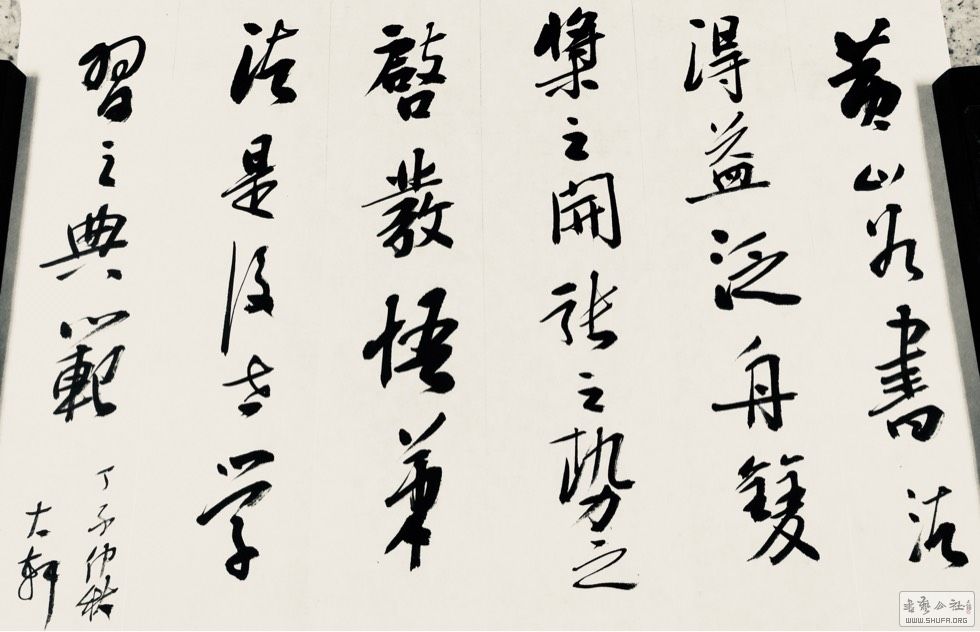 黄山谷書法
得益泛舟雙
槳之開張之勢之
啓發悟筆
法是後世学
習之典範
丁仲秋
大軒
书艺公社
WWW.SHUFA.ORG